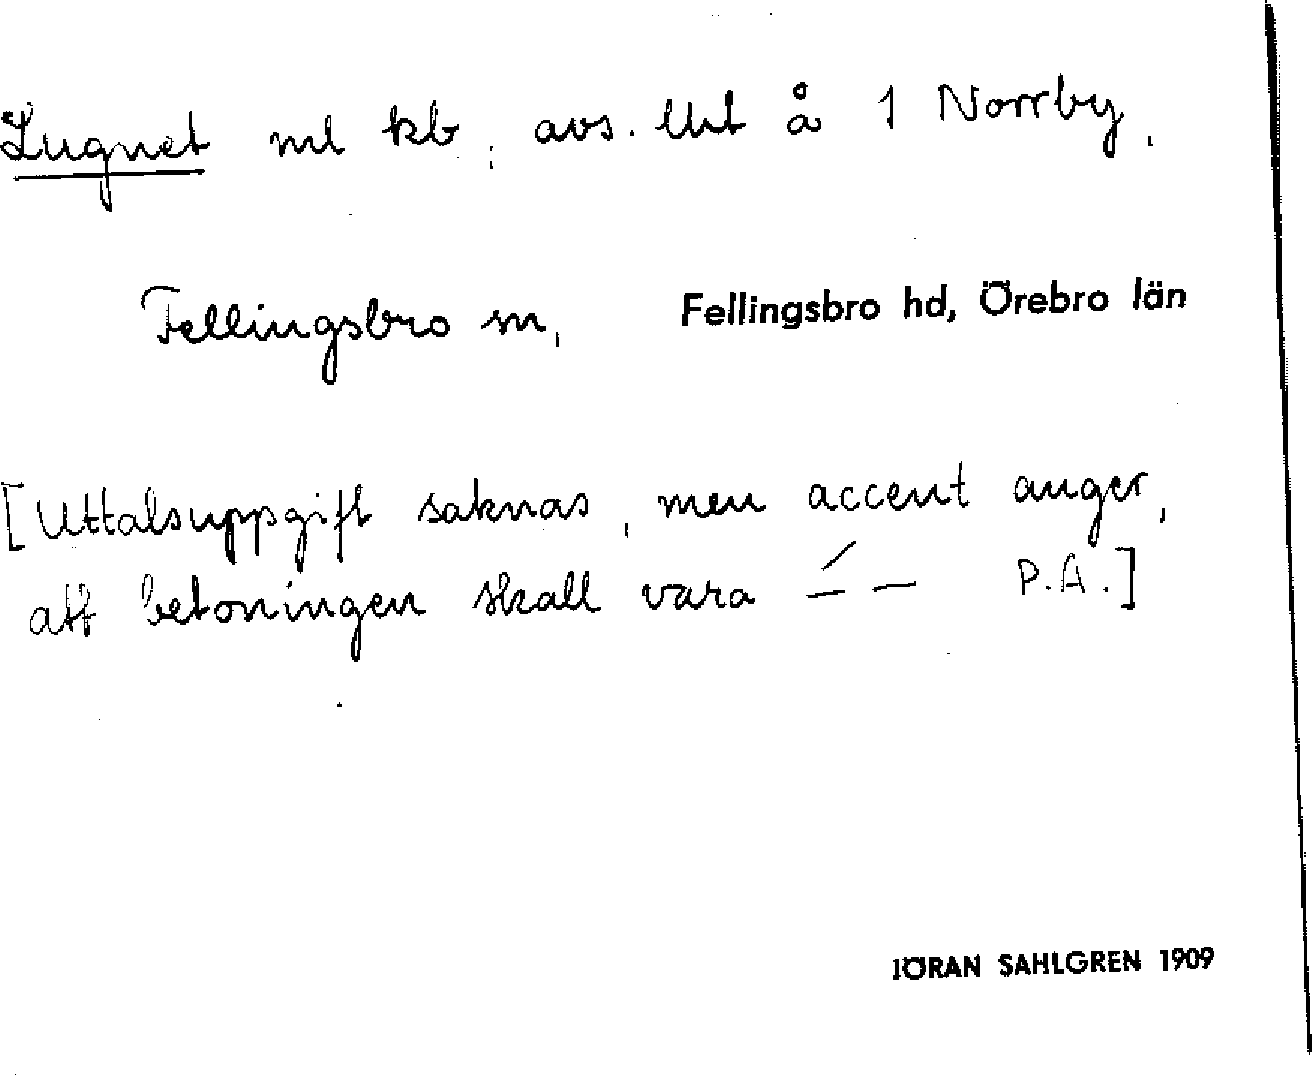 Lugnet ml kb, avs. lht å 1 Norrby,
Fellingsbro sn, Fellingsbro hd, Örebro län
[Uttalsuppgift saknas, men accent anger,
att betoningen skall vara —́ — P.A.]
JÖRAN SAHLGREN 1909